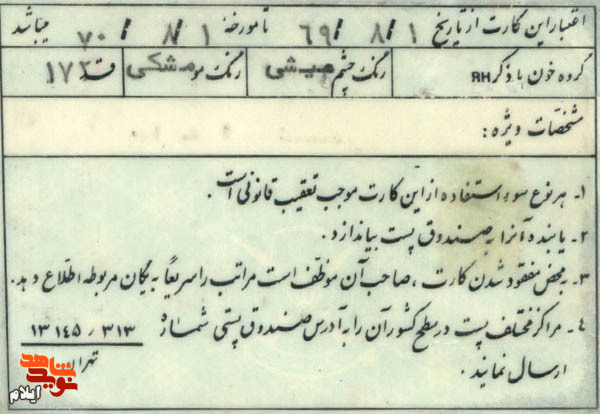 اعتبار این کارت از تاریخ ۱ / ۸ / ۶۹ تا مورخهٔ ۱ / ۸ / ۷۰ میباشد
گروه خون با ذکر RH رنگ چشم میشی رنگ مو مشکی قد ۱۷۲
مشخصات ویژه:
۱- هر نوع سوء استفاده از این کارت موجب تعقیب قانونی است.
۲- یابنده آنرا به صندوق پست بیاندازد.
۳- به محض مفقود شدن کارت، صاحب آن موظف است مراتب را سریعاً به یگان مربوطه اطلاع دهد.
۴- مراکز مختلف پست در سطح کشور آن را به آدرس صندوق پستی شماره ۱۳۱۴۵/۳۱۳ تهران
ارسال نمایند.
نوید شاهد
ایلام